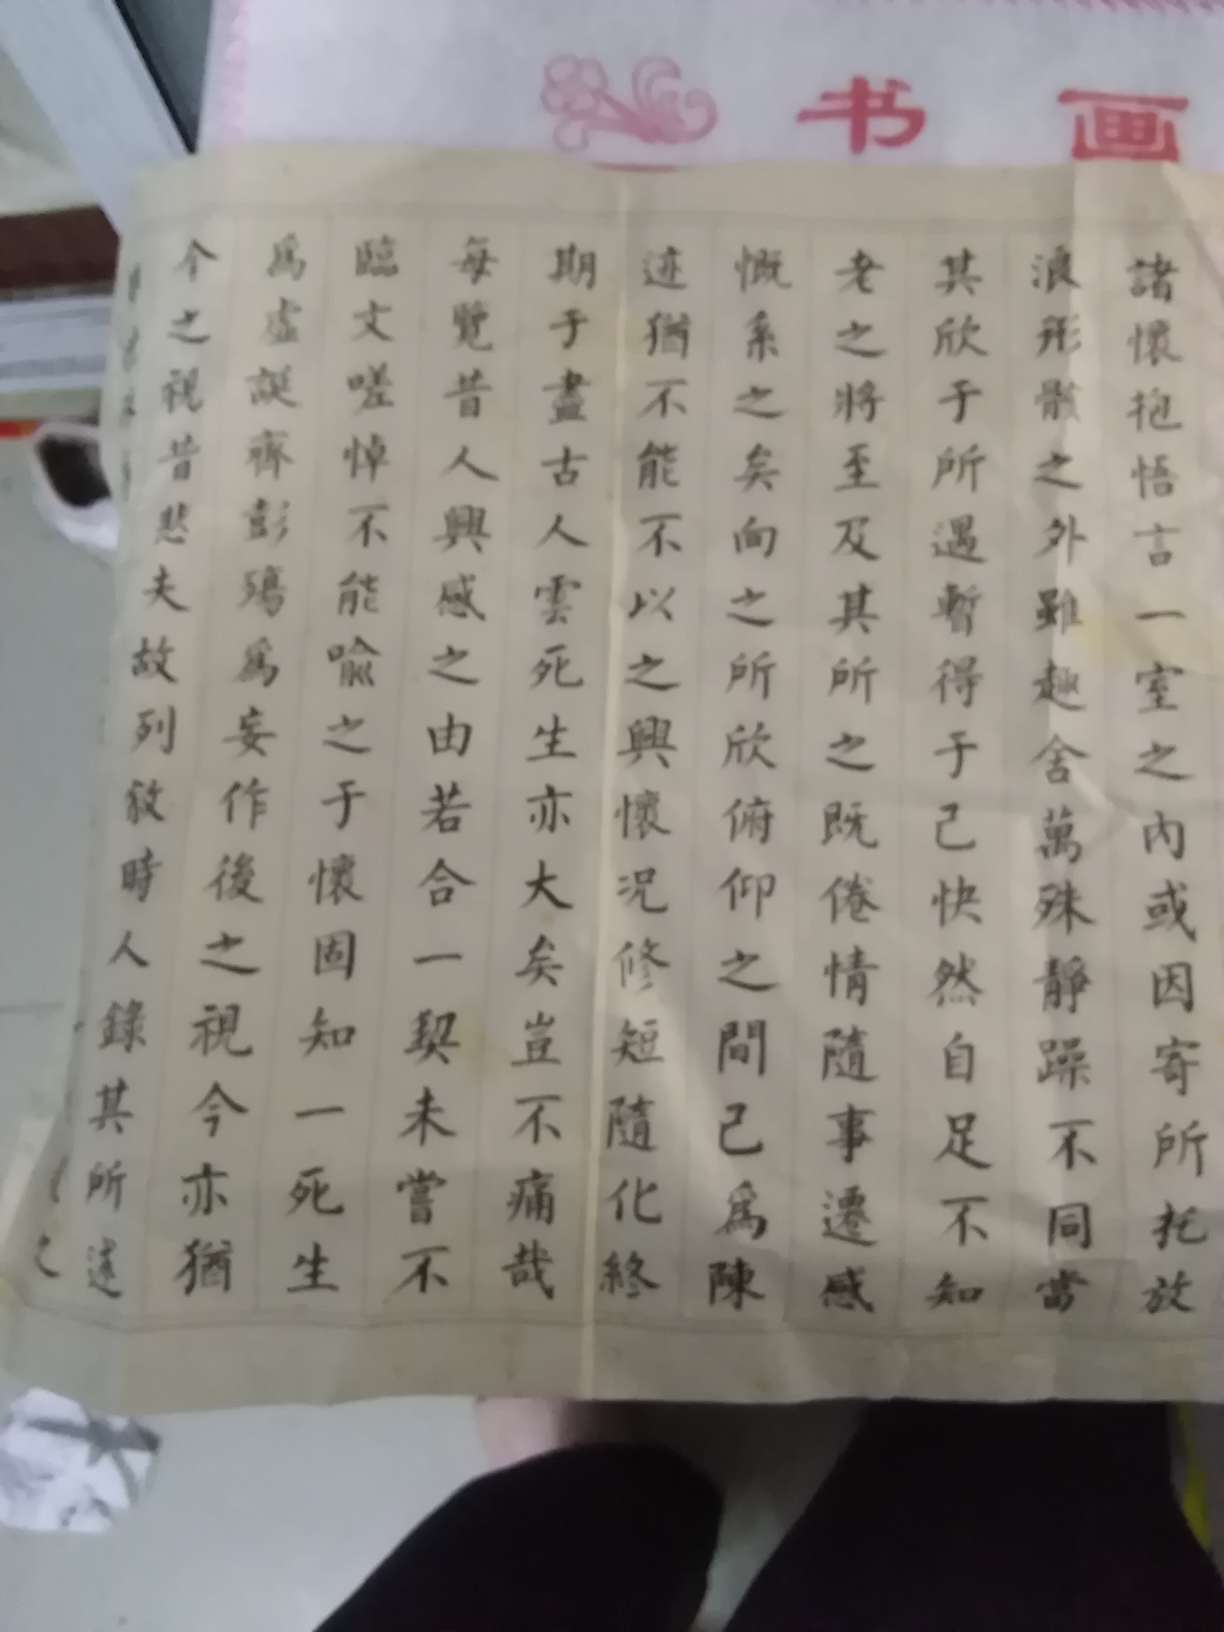 书画
諸懷抱悟言一室之內或因寄所托放
浪形骸之外雖趣舍萬殊靜躁不同當
其欣于所遇暫得于己快然自足不知
老之將至及其所之既倦情隨事遷感
慨系之矣向之所欣俯仰之間己爲陳
迹猶不能不以之興懷况修短隨化終
期于盡古人雲死生亦大矣豈不痛哉
每覽昔人興感之由若合一契未嘗不
臨文嗟悼不能喻之于懷固知一死生
爲虛誕齊彭殤爲妄作後之視今亦猶
今之視昔悲夫故列敘時人錄其所述